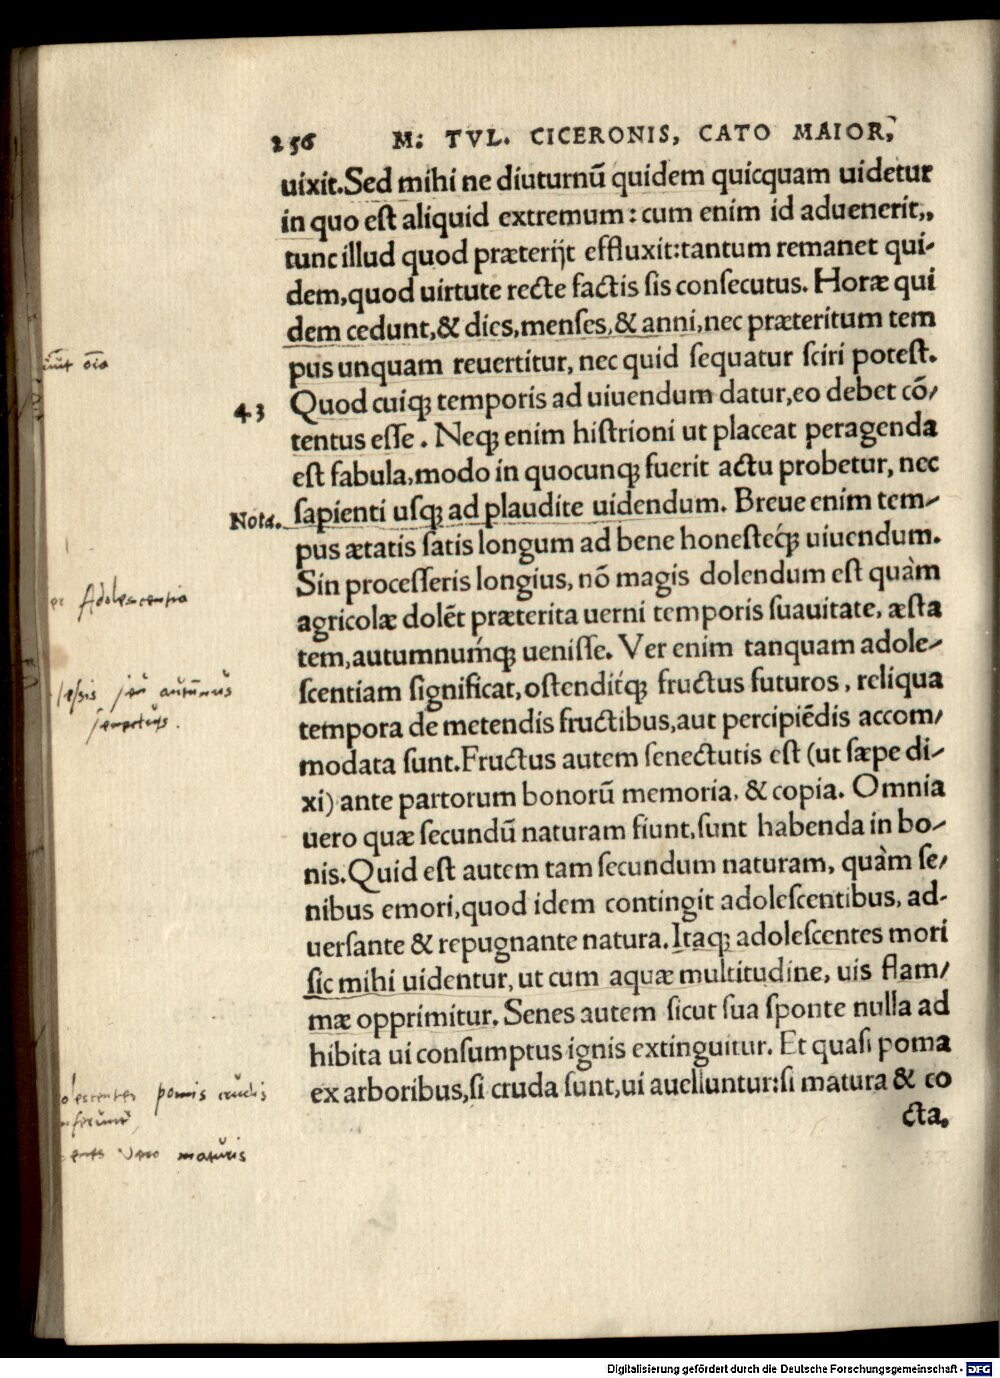 256 M: TVL. CICERONIS, CATO MAIOR,
uixit.Sed mihi ne diuturnū quidem quicquam uidetur
in quo eſt aliquid extremum: cum enim id aduenerit,,
tunc illud quod præterijt effluxit:tantum remanet qui-
dem,quod uirtute recte factis ſis conſecutus. Horæ qui
dem cedunt,& dies,menſes,& anni,nec præteritum tem
pus unquam reuertitur, nec quid ſequatur ſciri poteſt.
43 Quod cuiqꝫ temporis ad uiuendum datur,eo debet cō/
tentus eſſe. Neqꝫ enim hiſtrioni ut placeat peragenda
eſt fabula,modo in quocunqꝫ fuerit actu probetur, nec
Nota. ſapienti uſqꝫ ad plaudite uidendum. Breue enim tem/
pus ætatis ſatis longum ad bene honeſteq́ꝫ uiuendum.
Sin proceſſeris longius, nō magis dolendum eſt quàm
Adolescentia
agricolæ dolēt præterita uerni temporis ſuauitate, æſta
tem,autumnumq́ꝫ ueniſſe. Ver enim tanquam adole/
ſcentiam ſignificat,oſtenditq́ꝫ fructus futuros, reliqua
seu autūnus
tempora de metendis fructibus,aut percipiēdis accom/
modata ſunt.Fructus autem ſenectutis eſt (ut ſæpe di/
xi) ante partorum bonorū memoria, & copia. Omnia
uero quæ ſecundū naturam fiunt,ſunt habenda in bo/
nis.Quid eſt autem tam ſecundum naturam, quàm ſe/
nibus emori,quod idem contingit adoleſcentibus, ad-
uerſante & repugnante natura.Itaqꝫ adoleſcentes mori
ſic mihi uidentur, ut cum aquæ multitudine, uis flam/
mæ opprimitur. Senes autem ſicut ſua ſponte nulla ad
hibita ui conſumptus ignis extinguitur. Et quaſi poma
ex arboribus,ſi cruda ſunt,ui auelluntur:ſi matura & co
cta.
pomis crudis
vero maturis
Digitalisierung gefördert durch die Deutsche Forschungsgemeinschaft - DFG